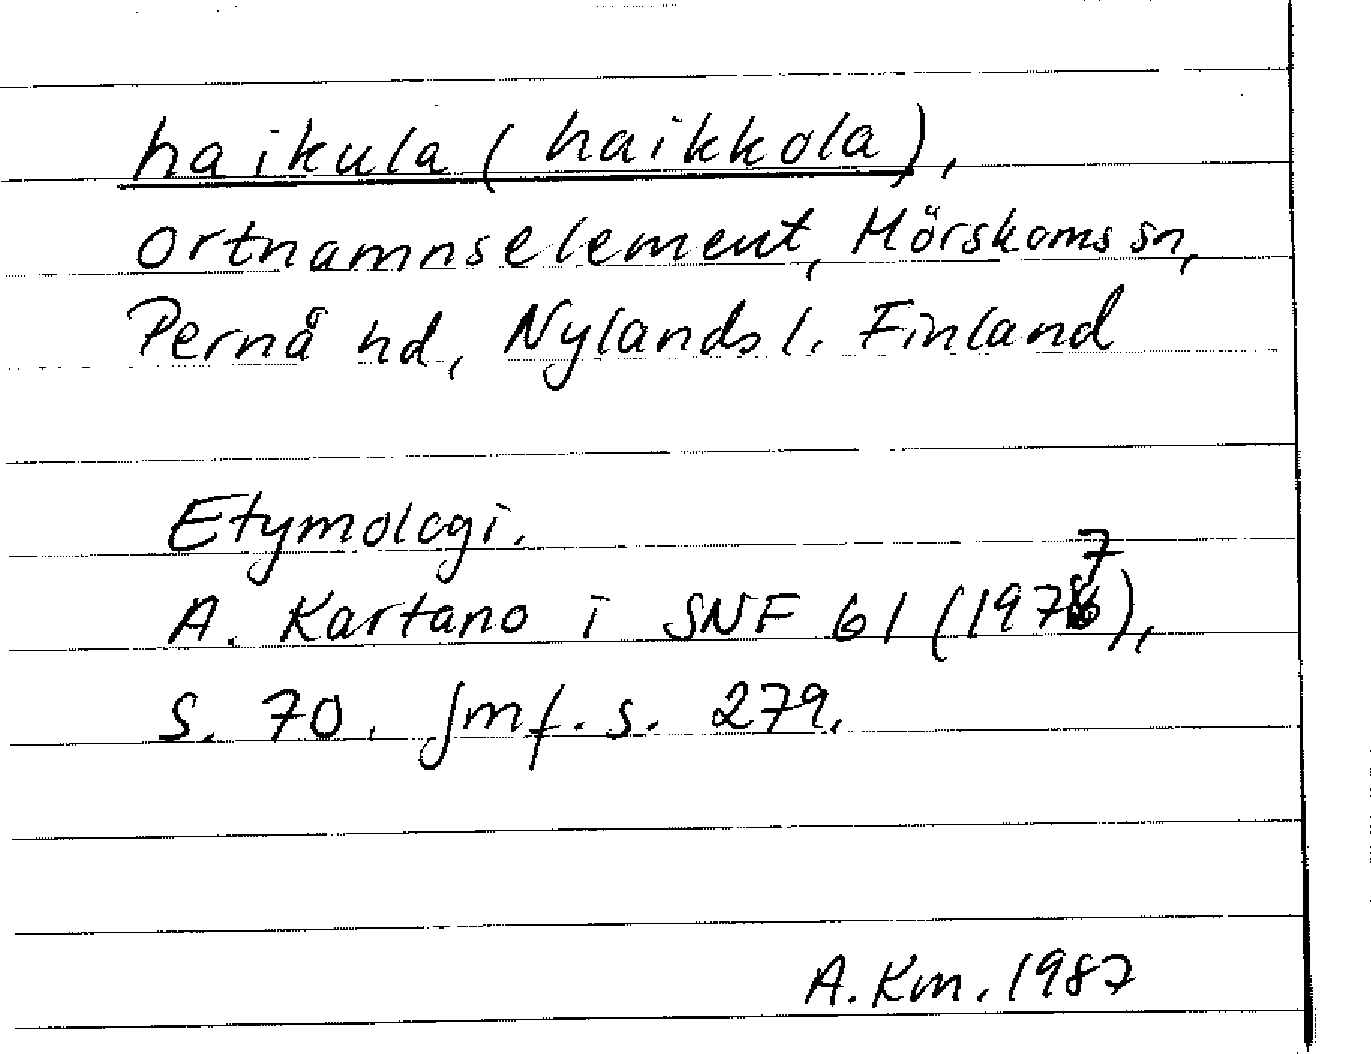 haikula (haikkola),
ortnamnselement, Mörskoms sn,
Pernå hd, Nylands l. Finland
Etymologi.
A. Kartano i SNF 61 (1977),
s. 70. Jmf. s. 279.
A. Km. 1987